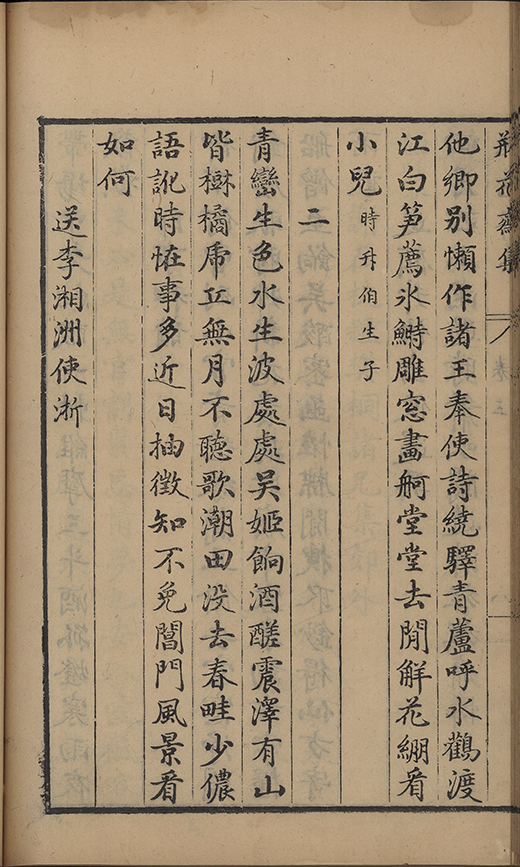 瓶花齋集 卷三
他鄉別懶作諸王奉使詩繞驛青蘆呼水鸛渡
江白笋薦氷鰣雕窓畫舸堂堂去閒觧花綳看
小兒時升伯生子
二
青巒生色水生波處處吳姬餉酒醝震澤有山
皆樹橘虎丘無月不聽歌潮田没去春畦少儂
語訛時恠事多近日抽徴知不免閶門風景看
如何
送李湘洲使浙